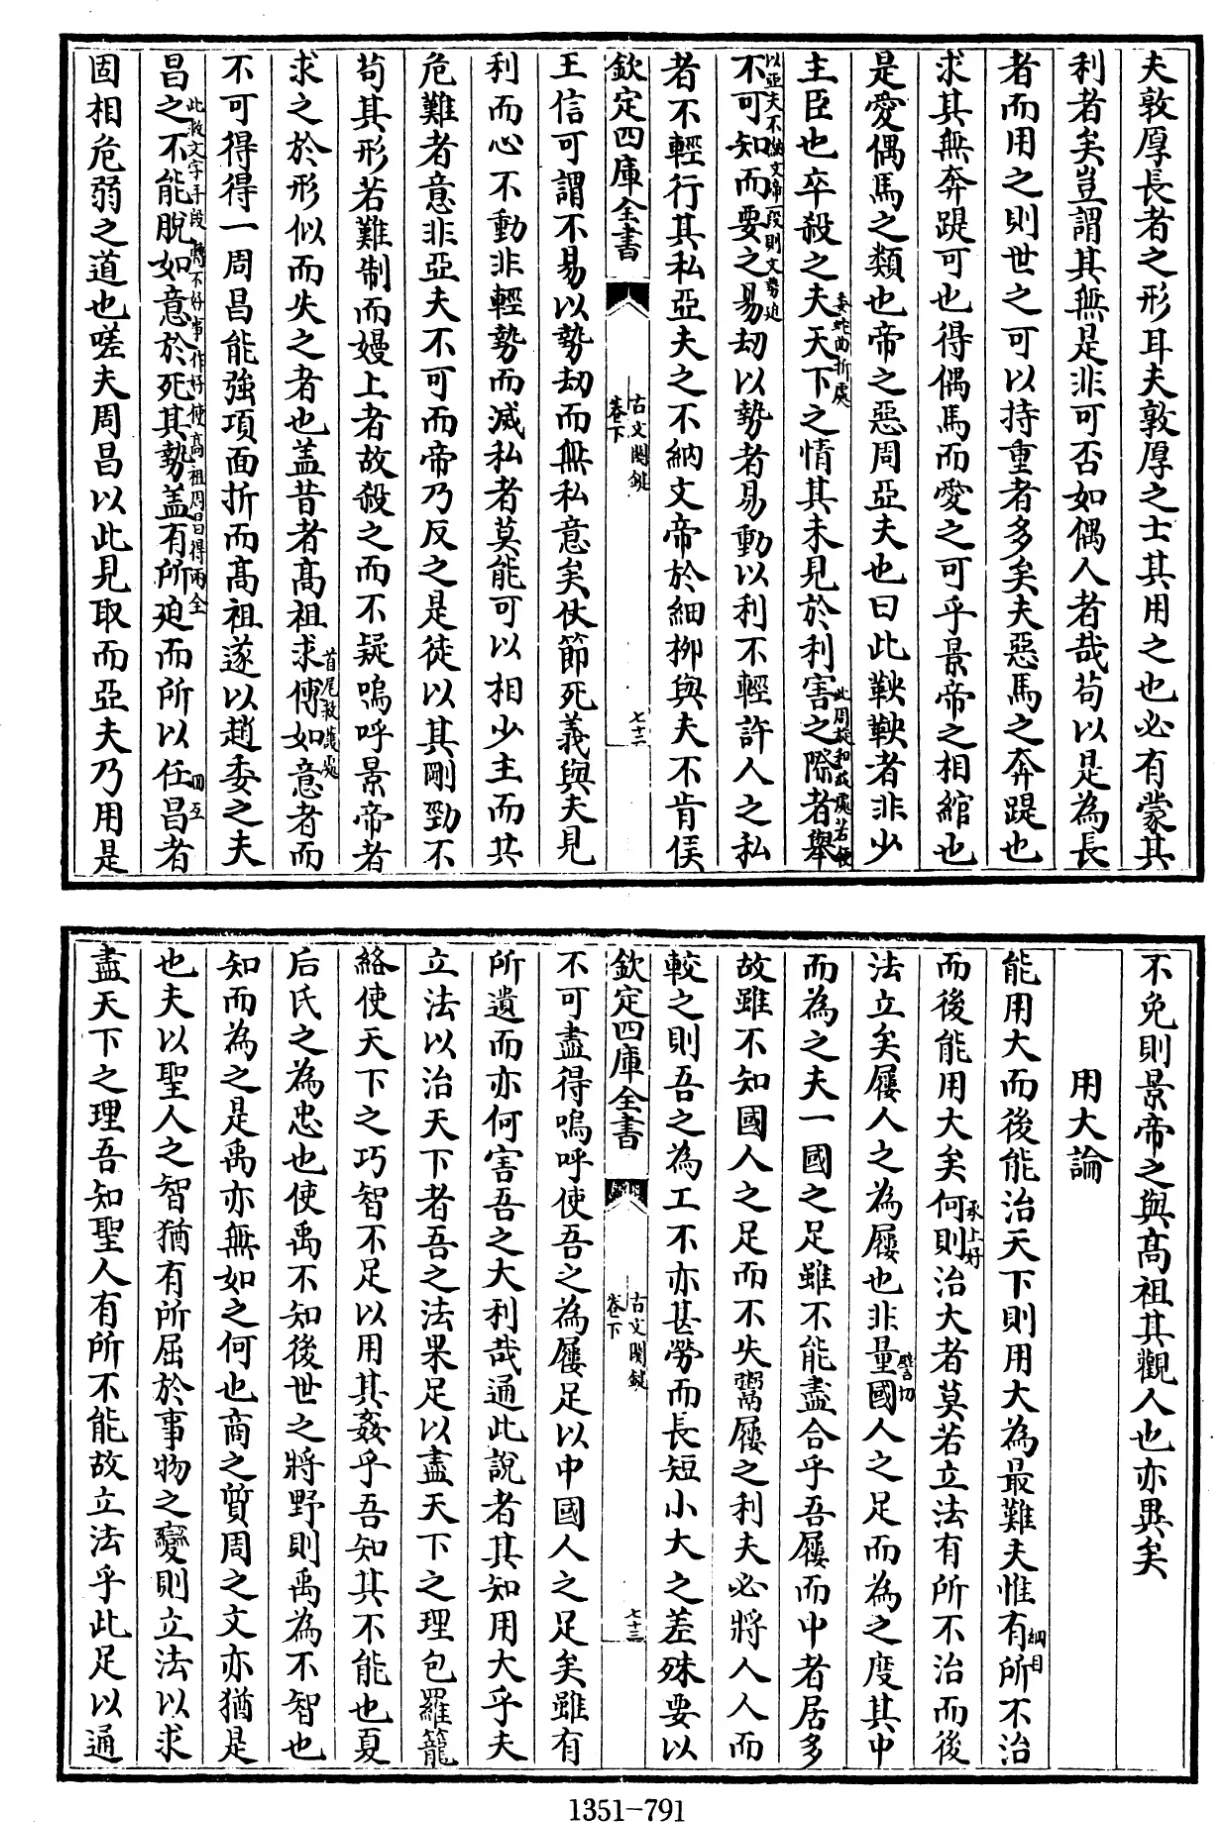 夫敦厚長者之形耳夫敦厚之士其用之也必有蒙其
利者矣豈謂其無是非可否如偶人者哉苟以是為長
者而用之則世之可以持重者多矣夫惡馬之奔踶也
求其無奔踶可也得偶馬而愛之可乎景帝之相綰也
是愛偶馬之類也帝之惡周亞夫也曰此鞅鞅者非少
主臣也卒殺之夫天下之情其未見於利害之際者舉
委蛇曲折處
此周旋和成處若便
以亞夫不納文帝一段則文勢迫
不可知而要之易刼以勢者易動以利不輕許人之私
者不輕行其私亞夫之不納文帝於細栁與夫不肯侯
欽定四庫全書
古文關鍵
卷下
七十二
王信可謂不易以勢刼而無私意矣仗節死義與夫見
利而心不動非輕勢而滅私者莫能可以相少主而共
危難者意非亞夫不可而帝乃反之是徒以其剛勁不
苟其形若難制而嫚上者故殺之而不疑嗚呼景帝者
求之於形似而失之者也盖昔者髙祖求傅如意者而
首尾救護處
不可得得一周昌能強項面折而髙祖遂以趙委之夫
昌之不能脫如意於死其勢盖有所迫而所以任昌者
此救文字手段
不好事作好使髙祖周昌得兩全
回互
固相危弱之道也嗟夫周昌以此見取而亞夫乃用是
不免則景帝之與髙祖其觀人也亦異矣
用大論
能用大而後能治天下則用大為最難夫惟有所不治
綱目
而後能用大矣何則治大者莫若立法有所不治而後
承上好
法立矣屨人之為屨也非量國人之足而為之度其中
譬切
而為之夫一國之足雖不能盡合乎吾屨而中者居多
故雖不知國人之足而不失鬻屨之利夫必將人人而
較之則吾之為工不亦甚勞而長短小大之差殊要以
欽定四庫全書
古文關鍵
卷下
七十三
不可盡得嗚呼使吾之為屨足以中國人之足矣雖有
所遺而亦何害吾之大利哉通此說者其知用大乎夫
立法以治天下者吾之法果足以盡天下之理包羅籠
絡使天下之巧智不足以用其姦乎吾知其不能也夏
后氏之為忠也使禹不知後世之將野則禹為不智也
知而為之是禹亦無如之何也商之質周之文亦猶是
也夫以聖人之智猶有所屈於事物之變則立法以求
盡天下之理吾知聖人有所不能故立法乎此足以通
1351-791